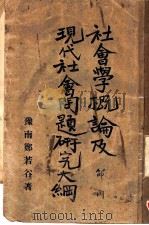 社會學概論及
現代社會問題研究大綱
豫南鄭若谷著